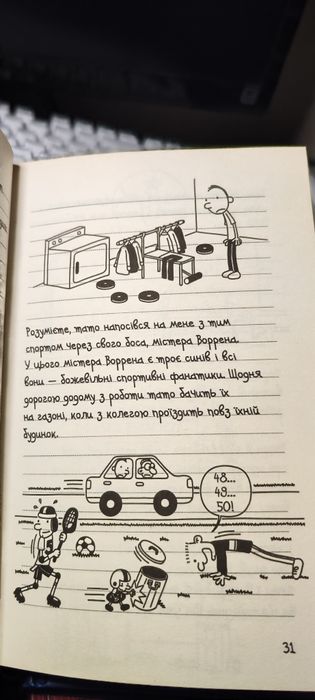 Розумієте, тато напосівся на мене з тим
спортом через свого боса, містера Воррена.
У цього містера Воррена є троє синів і всі
вони — божевільні спортивні фанатики. Щодня
дорогою додому з роботи тато бачить їх
на газоні, коли з колегою проїздить повз їхній
будинок.
48...
49...
50!
31